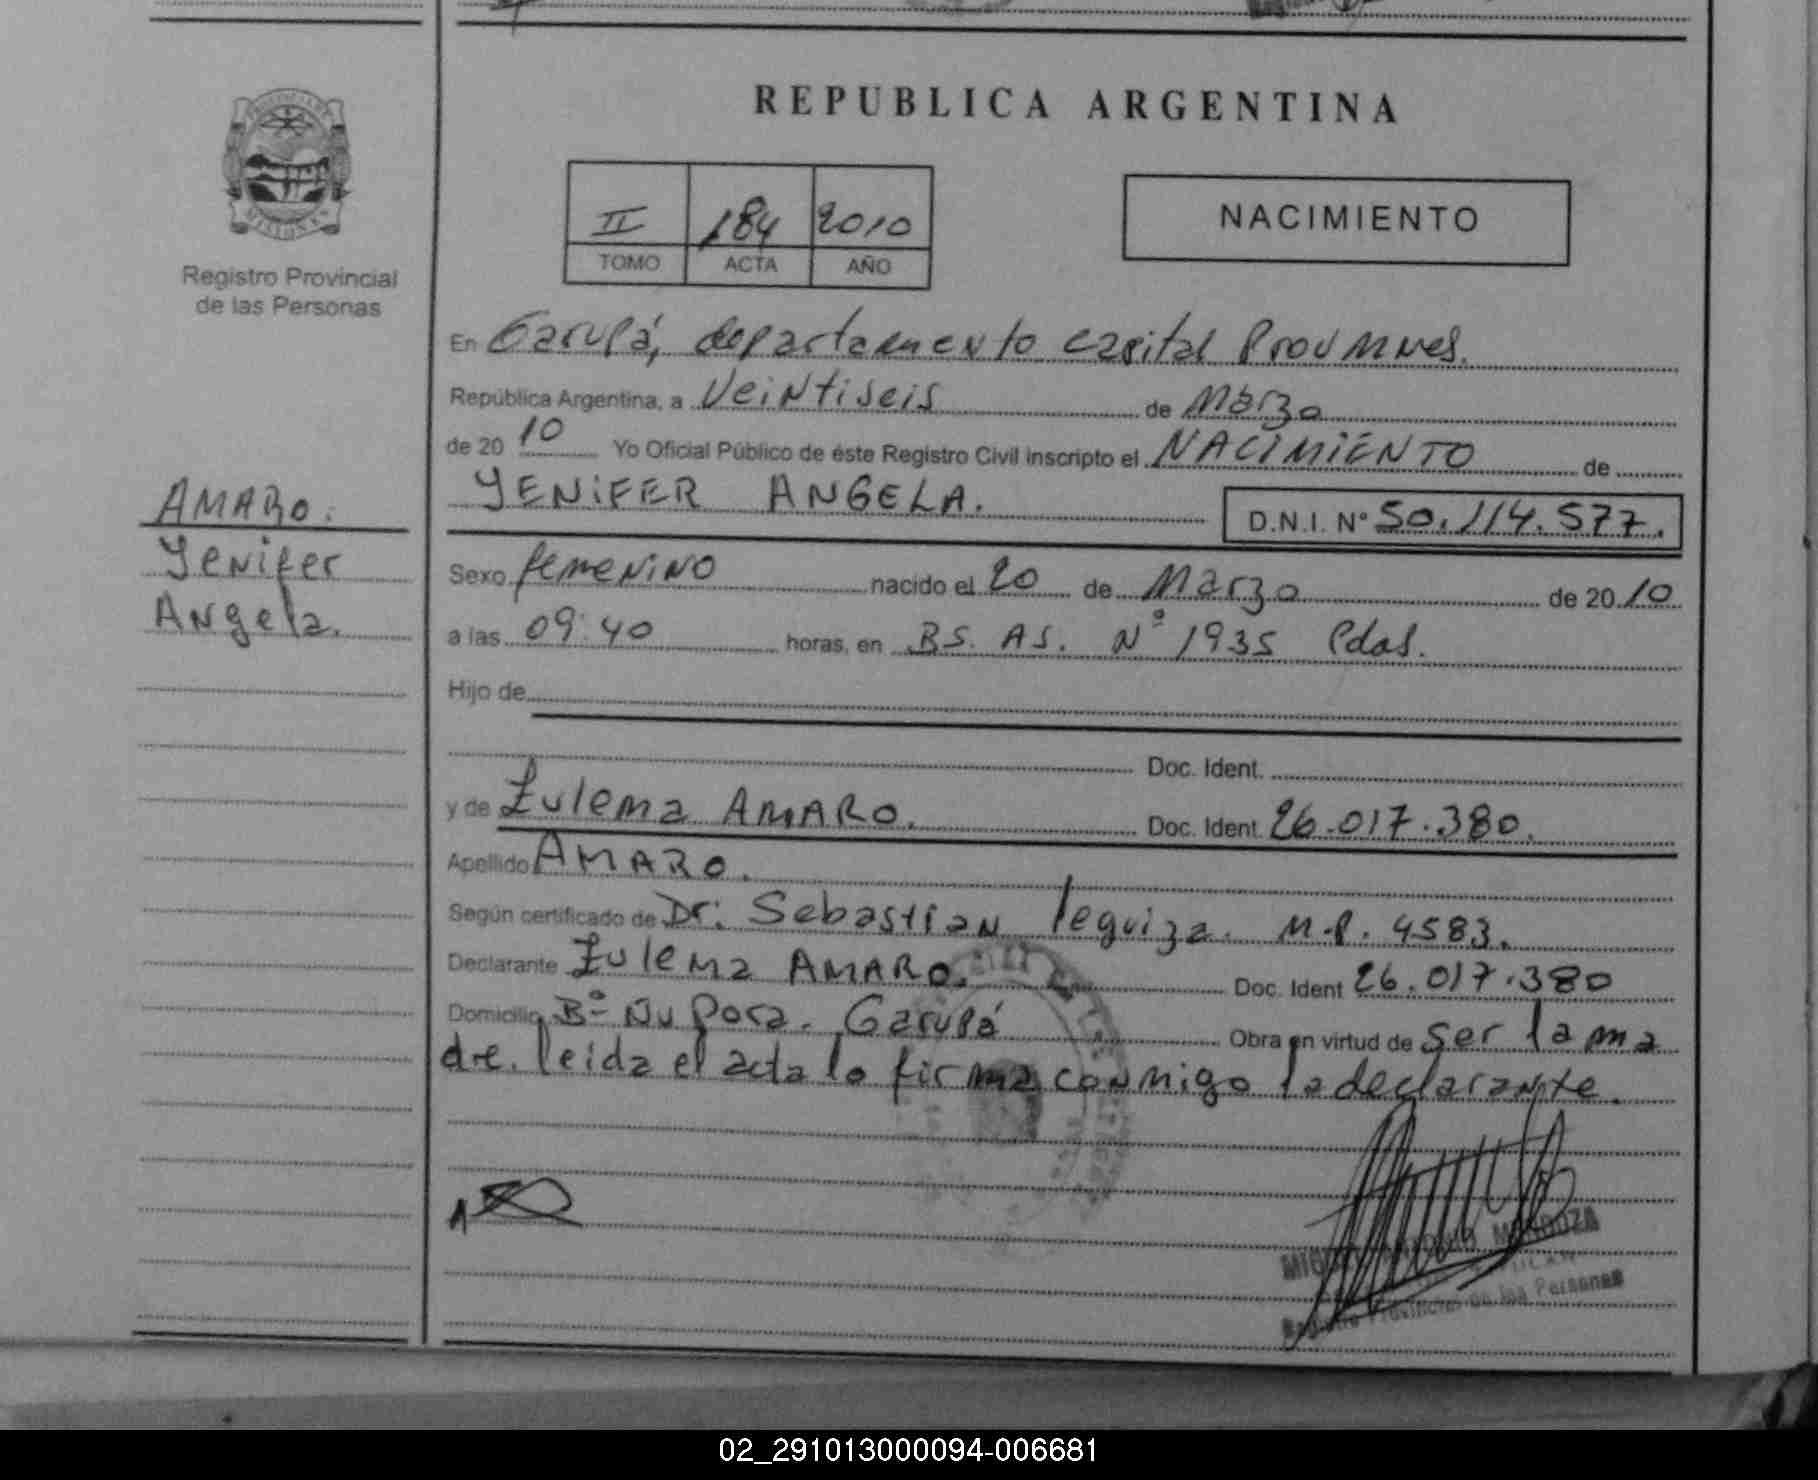 REPUBLICA ARGENTINA
II 184 2010
TOMO ACTA AÑO
NACIMIENTO
Registro Provincial
de las Personas
AMARO.
Yenifer
Angela.
En Garupá, departamento capital Prov Mnes.
República Argentina, a Veintiseis de Marzo
de 20 10 Yo Oficial Público de éste Registro Civil inscripto el NACIMIENTO de
YENIFER ANGELA. D.N.I. Nº 50.114.577.
Sexo femenino nacido el 20 de Marzo de 20 10
a las 09:40 horas, en BS. AS. Nº 1935 Pdas.
Hijo de
Doc. Ident.
y de Zulema AMARO. Doc. Ident. 26.017.380.
Apellido AMARO.
Según certificado de Dr: Sebastian leguiza. M.P. 4583.
Declarante Zulema AMARO. Doc. Ident 26.017.380
Domicilio Bº Ñu Pora. Garupá Obra en virtud de ser la ma
dre. leida el acta lo firma conmigo la declarante.
MENDOZA
de las Personas
02_291013000094-006681